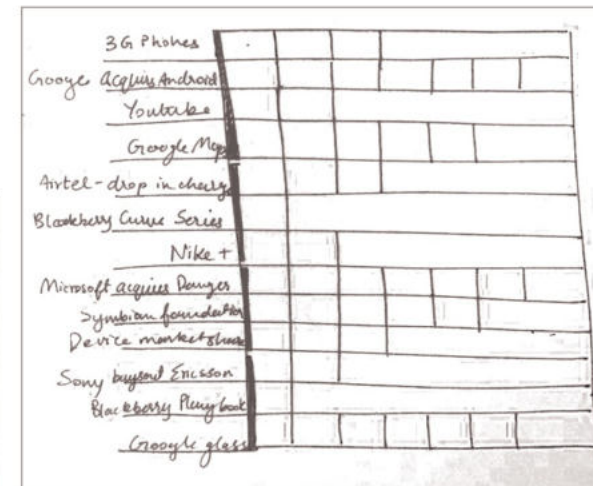 3G Phones
Googe acquirs Android
Youtube
Google Map
Airtel-drop in charge
Blackberry Curve Series
Nike +
Microsoft acquires Danger
Symbian foundation
Device market share
Sony buysout Ericsson
Blackberry Playbook
Google glass